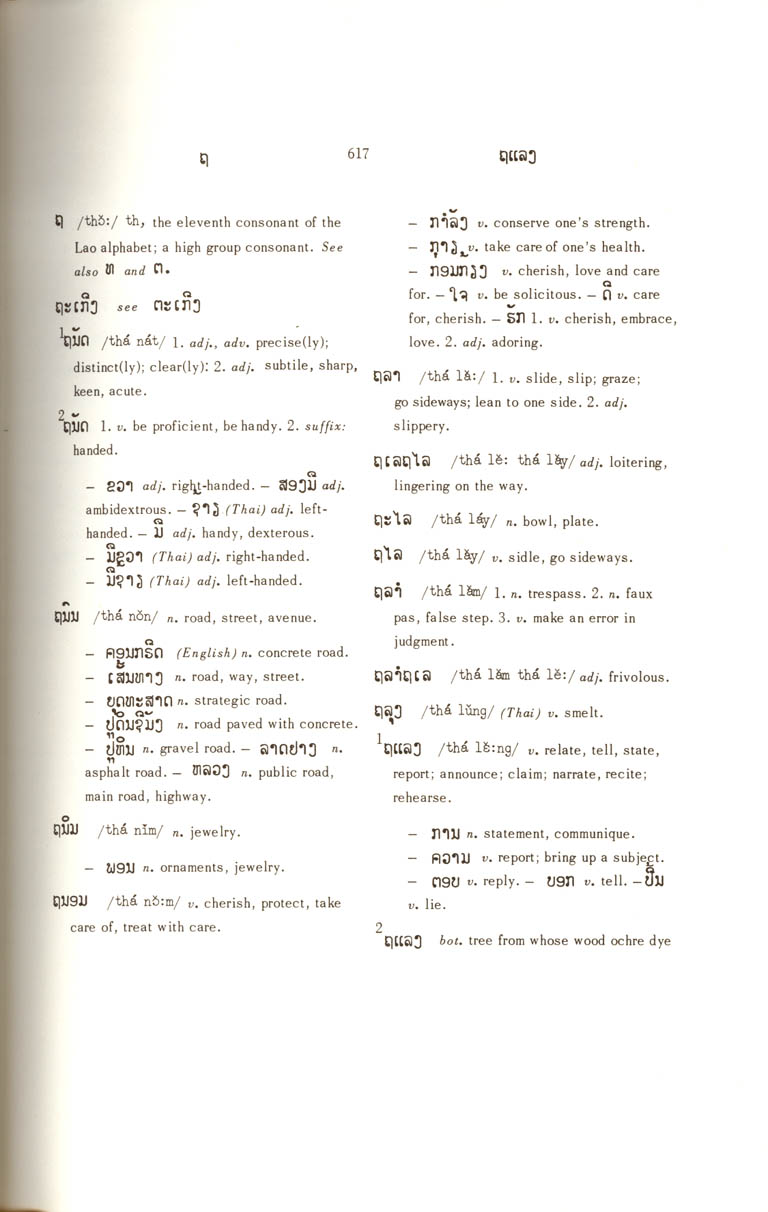 ຖ 617 ຖແລງ
ຖ /thɔ̌:/ th, the eleventh consonant of the
Lao alphabet; a high group consonant. See
also ທ and ຕ.
ຖະເກີງ see ຕະເກີງ
1ຖນັດ /thá nát/ 1. adj., adv. precise(ly);
distinct(ly); clear(ly): 2. adj. subtile, sharp,
keen, acute.
2ຖນັດ 1. v. be proficient, be handy. 2. suffix:
handed.
– ຂວາ adj. right-handed. – ສອງມື adj.
ambidextrous. – ຊາຽ (Thai) adj. left-
handed. – ມື adj. handy, dexterous.
– ມືຂວາ (Thai) adj. right-handed.
– ມືຊາຽ (Thai) adj. left-handed.
ຖນົນ /thá nǒn/ n. road, street, avenue.
– ຄອນກຣີດ (English) n. concrete road.
– ເສັ້ນທາງ n. road, way, street.
– ຍຸດທະສາດ n. strategic road.
– n. road paved with concrete.
– ປູຫິນ n. gravel road. – ລາດຢາງ n.
asphalt road. – ຫລວງ n. public road,
main road, highway.
ຖນິມ /thá nǐm/ n. jewelry.
– ພອນ n. ornaments, jewelry.
ຖນອມ /thá nɔ̌:m/ v. cherish, protect, take
care of, treat with care.
– ກຳລັງ v. conserve one's strength.
– v. take care of one's health.
– ກອມກຽງ v. cherish, love and care
for. – ໃຈ v. be solicitous. – ດີ v. care
for, cherish. – ຮັກ 1. v. cherish, embrace,
love. 2. adj. adoring.
ຖລາ /thá lǎ:/ 1. v. slide, slip; graze;
go sideways; lean to one side. 2. adj.
slippery.
ຖເລຖໄລ /thá lě: thá lǎy/ adj. loitering,
lingering on the way.
ຖະໄລ /thá láy/ n. bowl, plate.
ຖໄລ /thá lǎy/ v. sidle, go sideways.
ຖລຳ /thá lǎm/ 1. n. trespass. 2. n. faux
pas, false step. 3. v. make an error in
judgment.
ຖລຳຖເລ /thá lǎm thá lě:/ adj. frivolous.
ຖລຸງ /thá lǔng/ (Thai) v. smelt.
1ຖແລງ /thá lɛ̌:ng/ v. relate, tell, state,
report; announce; claim; narrate, recite;
rehearse.
– ການ n. statement, communique.
– ຄວາມ v. report; bring up a subject.
– ຕອບ v. reply. – ບອກ v. tell. – ປິ້ນ
v. lie.
2ຖແລງ bot. tree from whose wood ochre dye